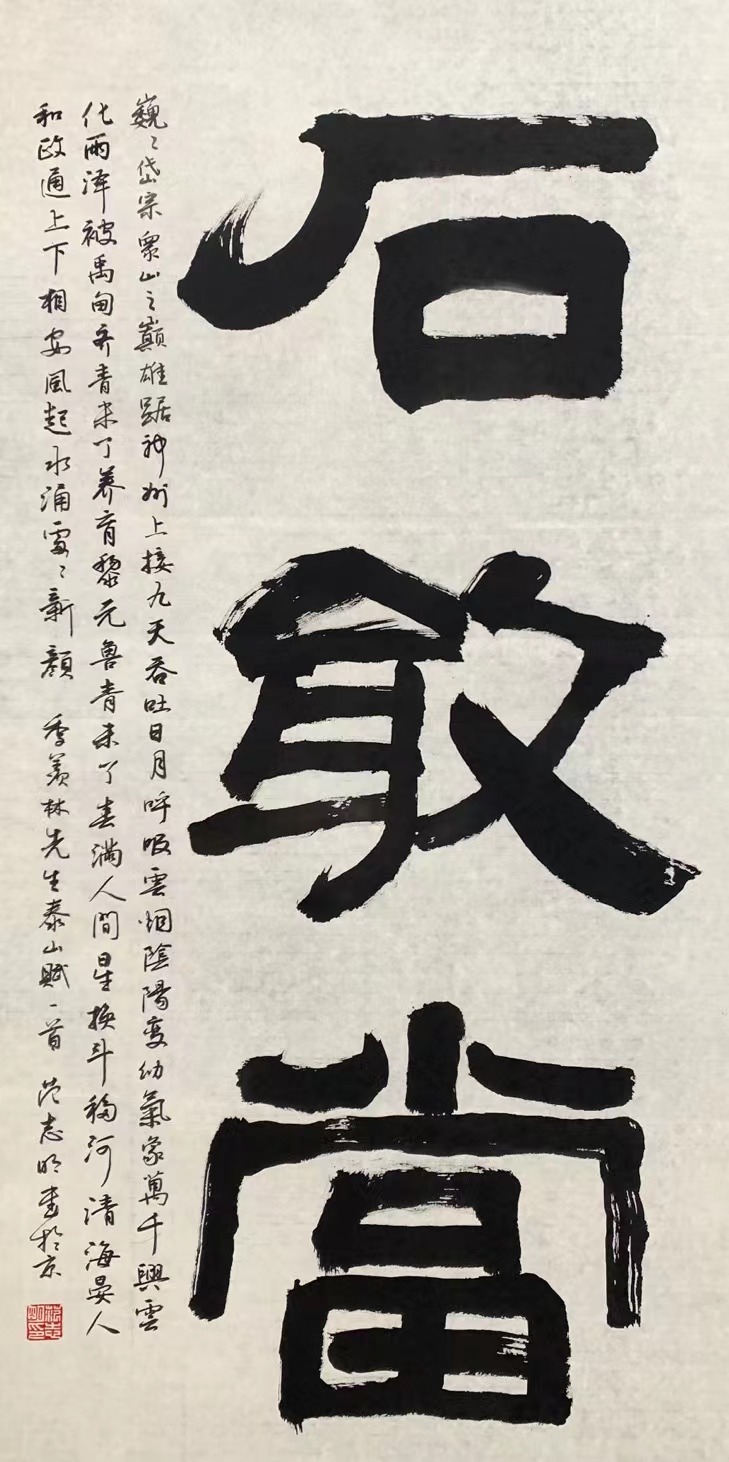 石敢當
巍々岱宗衆山之巔雄踞神州上接九天吞吐日月呼吸雲烟陰陽變幻氣象萬千興雲
化雨澤被禹甸齐青未了养育黎元魯青未了春滿人間星换斗移河清海晏人
和政通上下相安風起水涌處々新顔 季羨林先生泰山賦一首 范志明書於京
范志明印